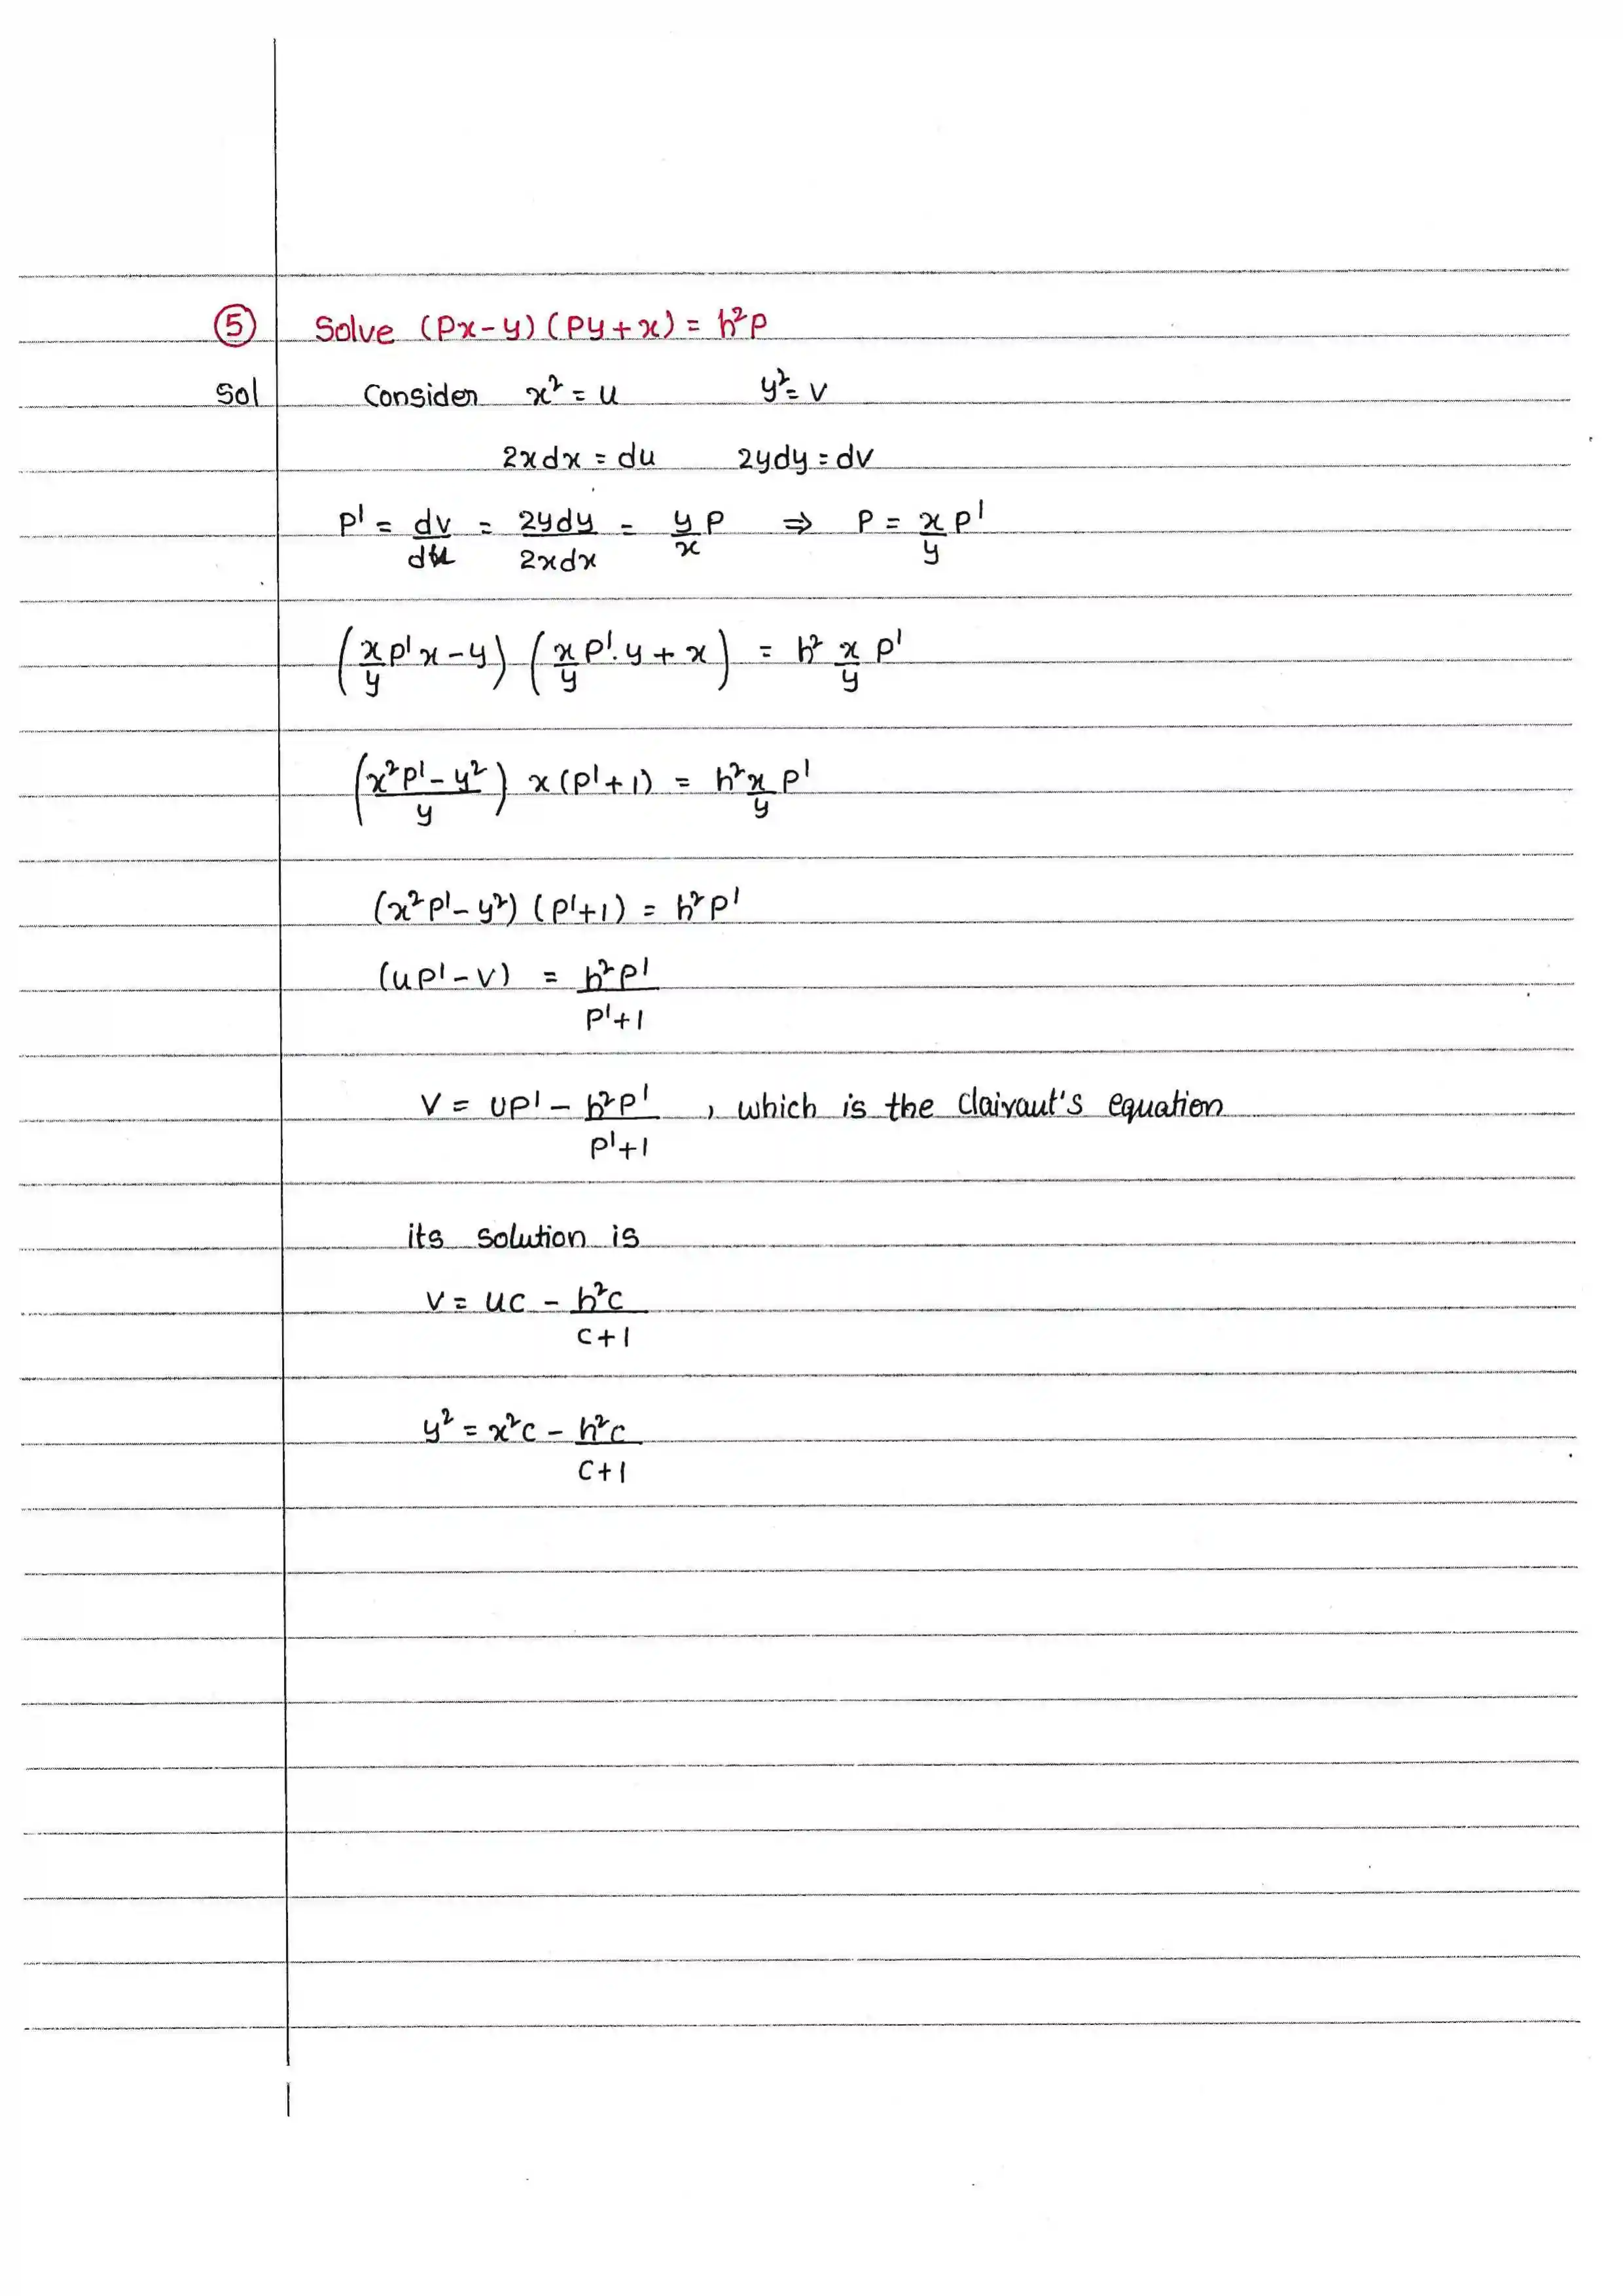 ⑤ Solve (Px-y)(Py+x) = h²P
Sol Consider x² = u y² = v
2xdx = du 2ydy = dv
P' = dv/du = 2ydy/2xdx = y/x P ⇒ P = x/y P'
(x/y P'x - y) (x/y P'.y + x) = h² x/y P'
((x²P' - y²)/y) x(P'+1) = h² x/y P'
(x²P' - y²) (P'+1) = h²P'
(uP' - v) = h²P'/(P'+1)
v = uP' - h²P'/(P'+1) , which is the Clairaut's equation
its solution is
v = uc - h²c/(c+1)
y² = x²c - h²c/(c+1)